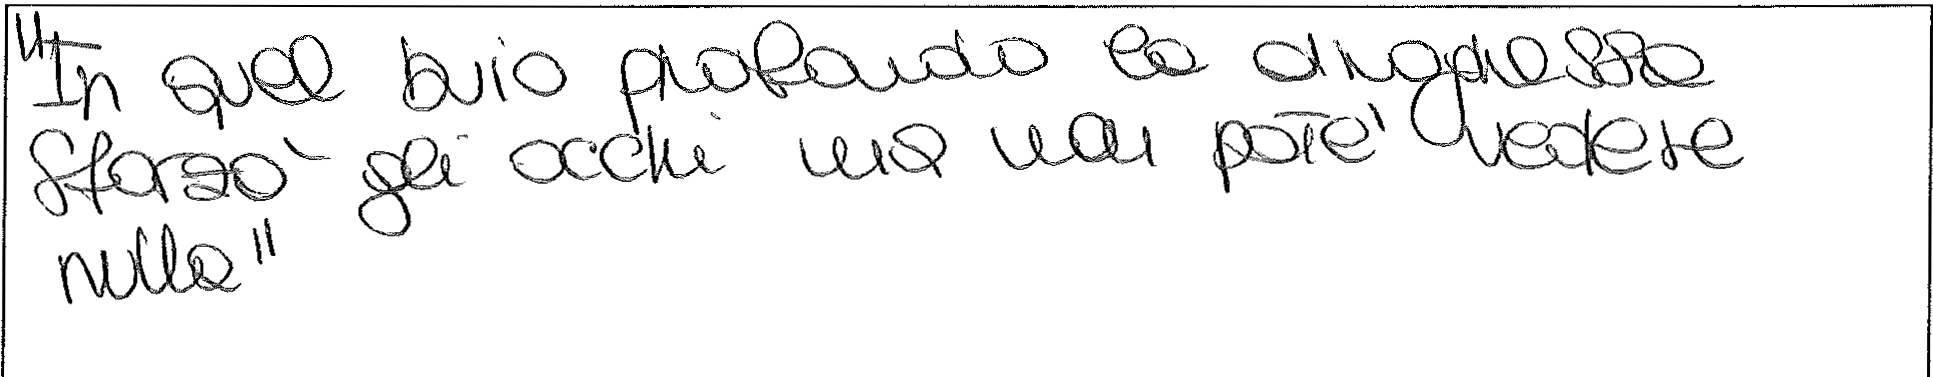 "In quel buio profondo la dragonessa
sforzò gli occhi ma non potè vedere
nulla"